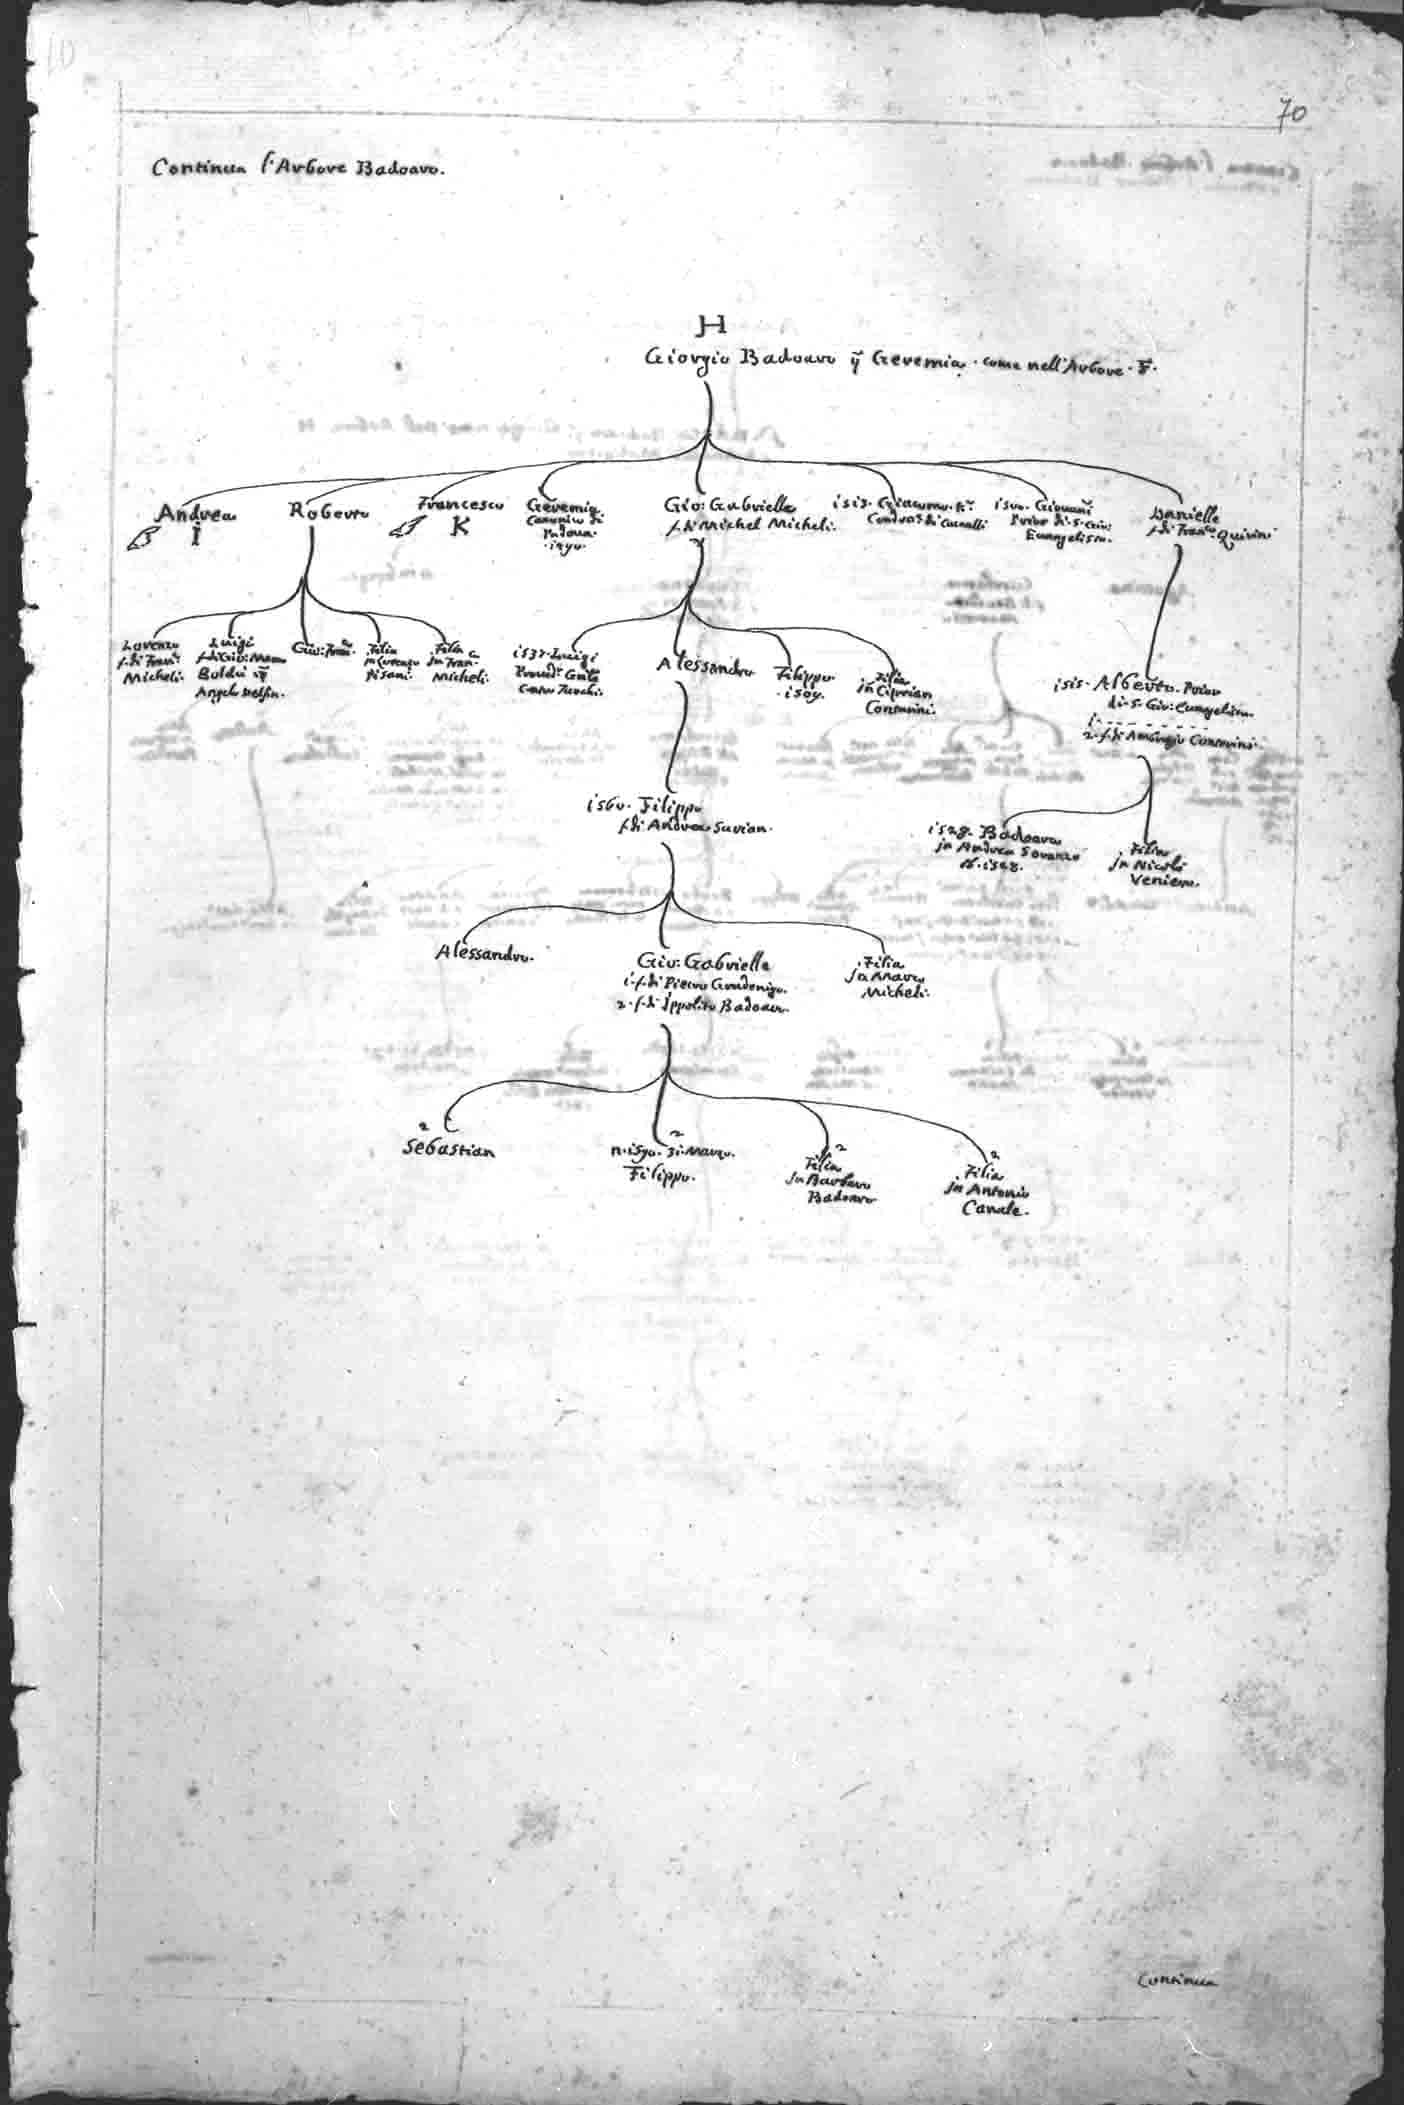 70
Continua l'Arbore Badoaro.
H
Giorgio Badoaro q Geremia. come nell'Arbore.
Andrea
I
Roberto
Francesco
K
Geremia.
Canonico di
Padoua.
Gio: Gabrielle
f. di Michel Micheli.
isis. Giacomo
Giouani
Prior di S. Gio:
Euangelista.
Danielle
f. di Franc.o Quirini
Lorenzo
f. di Fran.
Micheli.
Luigi
Boldù
Angelo Delfin.
Gio: Fran.
Filia
in Lorenzo
Pisani.
Filia
in Fran.
Micheli.
1537. Luigi
Alessandro
Filippo
Filia
in Ciprian
Contarini.
isis. Alberto. Prior
di S. Gio: Euangelista.
1. - - - - - - -
2. f. di Ambrogio Contarini.
i560. Filippo
f. di Andrea Surian.
i528. Badoara
in Andrea Soranzo
Filia
in Nicolò
Venier.
Alessandro.
Gio: Gabrielle
i. f. di Pietro Gradenigo.
2. f. di Ippolito Badoaro.
Filia
in Marco
Micheli.
2
Sebastian
2
n. i590. 3i. Marzo.
Filippo.
2
Filia
in Barbaro
Badoaro
2
Filia
in Antonio
Canale.
Continua